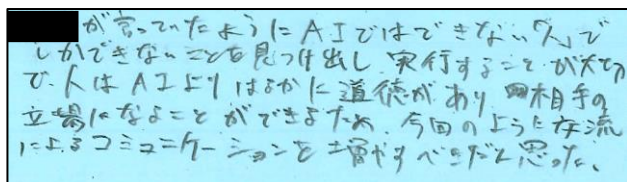 が言っていたようにAIではできない「人」で
しかできないことを見つけ出し実行することが大切
で、人はAIよりはるかに道徳があり相手の
立場になることができるため、今回のように交流
によるコミュニケーションを増やすべきだと思った。